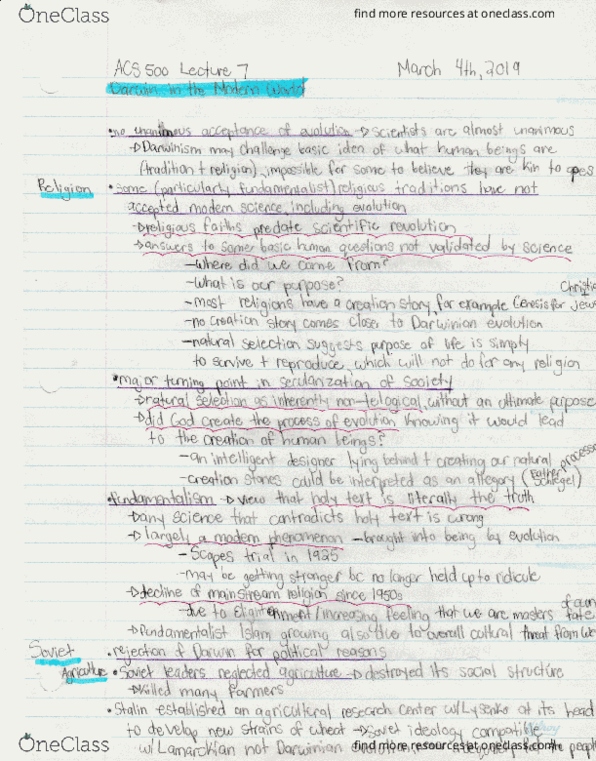 OneClass
find more resources at oneclass.com
ACS 500 Lecture 7 March 4th, 2019
Darwin in the Modern World
•no unanimous acceptance of evolution → scientists are almost unanimous
→Darwinism may challenge basic idea of what human beings are
(tradition + religion), impossible for some to believe they are kin to apes
Religion •some (particularly fundamentalist) religious traditions have not
accepted modern science, including evolution
→religious faiths predate scientific revolution
→answers to some basic human questions not validated by science
-Where did we come from?
-What is our purpose?
-most religions have a creation story, for example Genesis for Jews
Christia
-no creation story comes closer to Darwinian evolution
-natural selection suggests purpose of life is simply
to survive + reproduce, which will not do for any religion
•major turning point in secularization of society
→natural selection as inherently non-telogical, without an ultimate purpose
→did God create the process of evolution knowing it would lead
to the creation of human beings?
-an intelligent designer lying behind + creating our natural processes
-creation stories could be interpreted as an allegory (Father
•fundamentalism → view that holy text is literally the truth
→any science that contradicts holy text is wrong
→largely a modern phenomenon -brought into being by evolution
-Scopes trial in 1925
-may be getting stronger bc no longer held up to ridicule
→decline of mainstream religion since 1950s
-due to increasing feeling that we are masters of our fate
→fundamentalist Islam growing also due to overall cultural threat from
Soviet Agriculture •rejection of Darwin for political reasons
•Soviet leaders neglected agriculture → destroyed its social structure
→killed many farmers
•Stalin established an agricultural research center w/ Lysenko at its head
to develop new strains of wheat → Soviet ideology compatible
w/ Lamarckian not Darwinian
people
OneClass
find more resources at oneclass.com